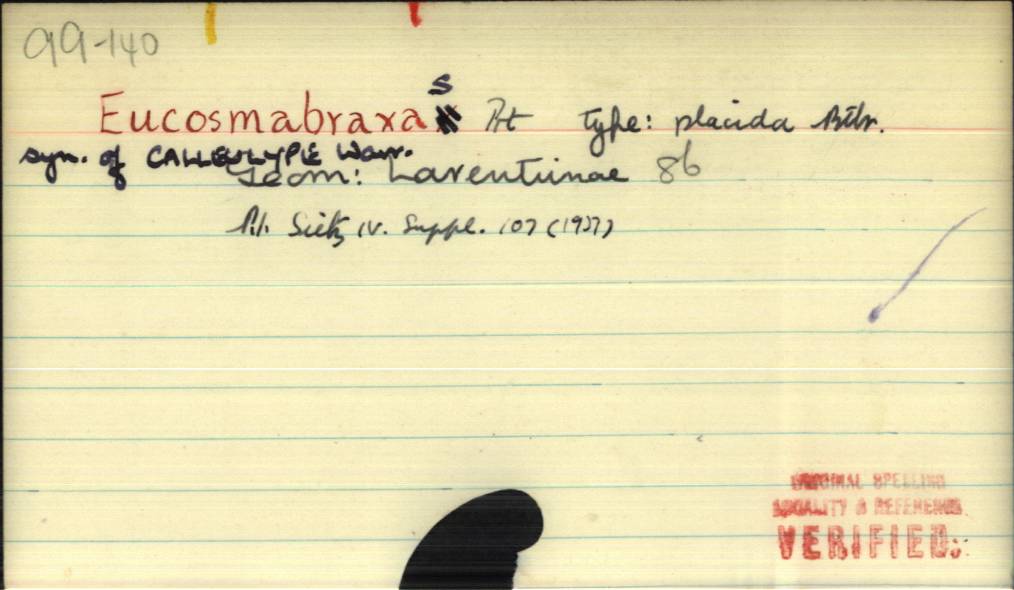 99-140
Eucosmabraxas Prt type: placida Btlr.
syn. of CALLEULYPE Warr.
Geom: Larentiinae 86
Prt. Seitz IV. Suppl. 107 (1937)
ORIGINAL SPELLING
LOCALITY & REFERENCE
VERIFIED: